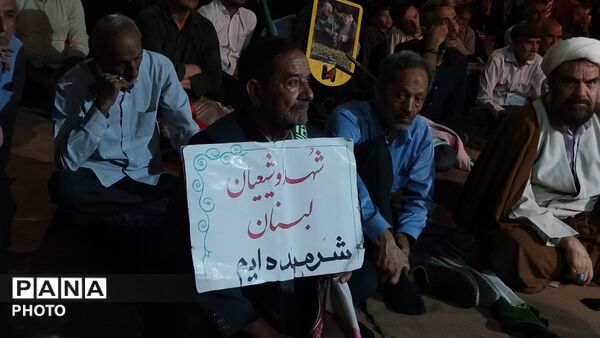 شهدا و شیعیان
لبنان
شرمنده ایم
PANA
PHOTO